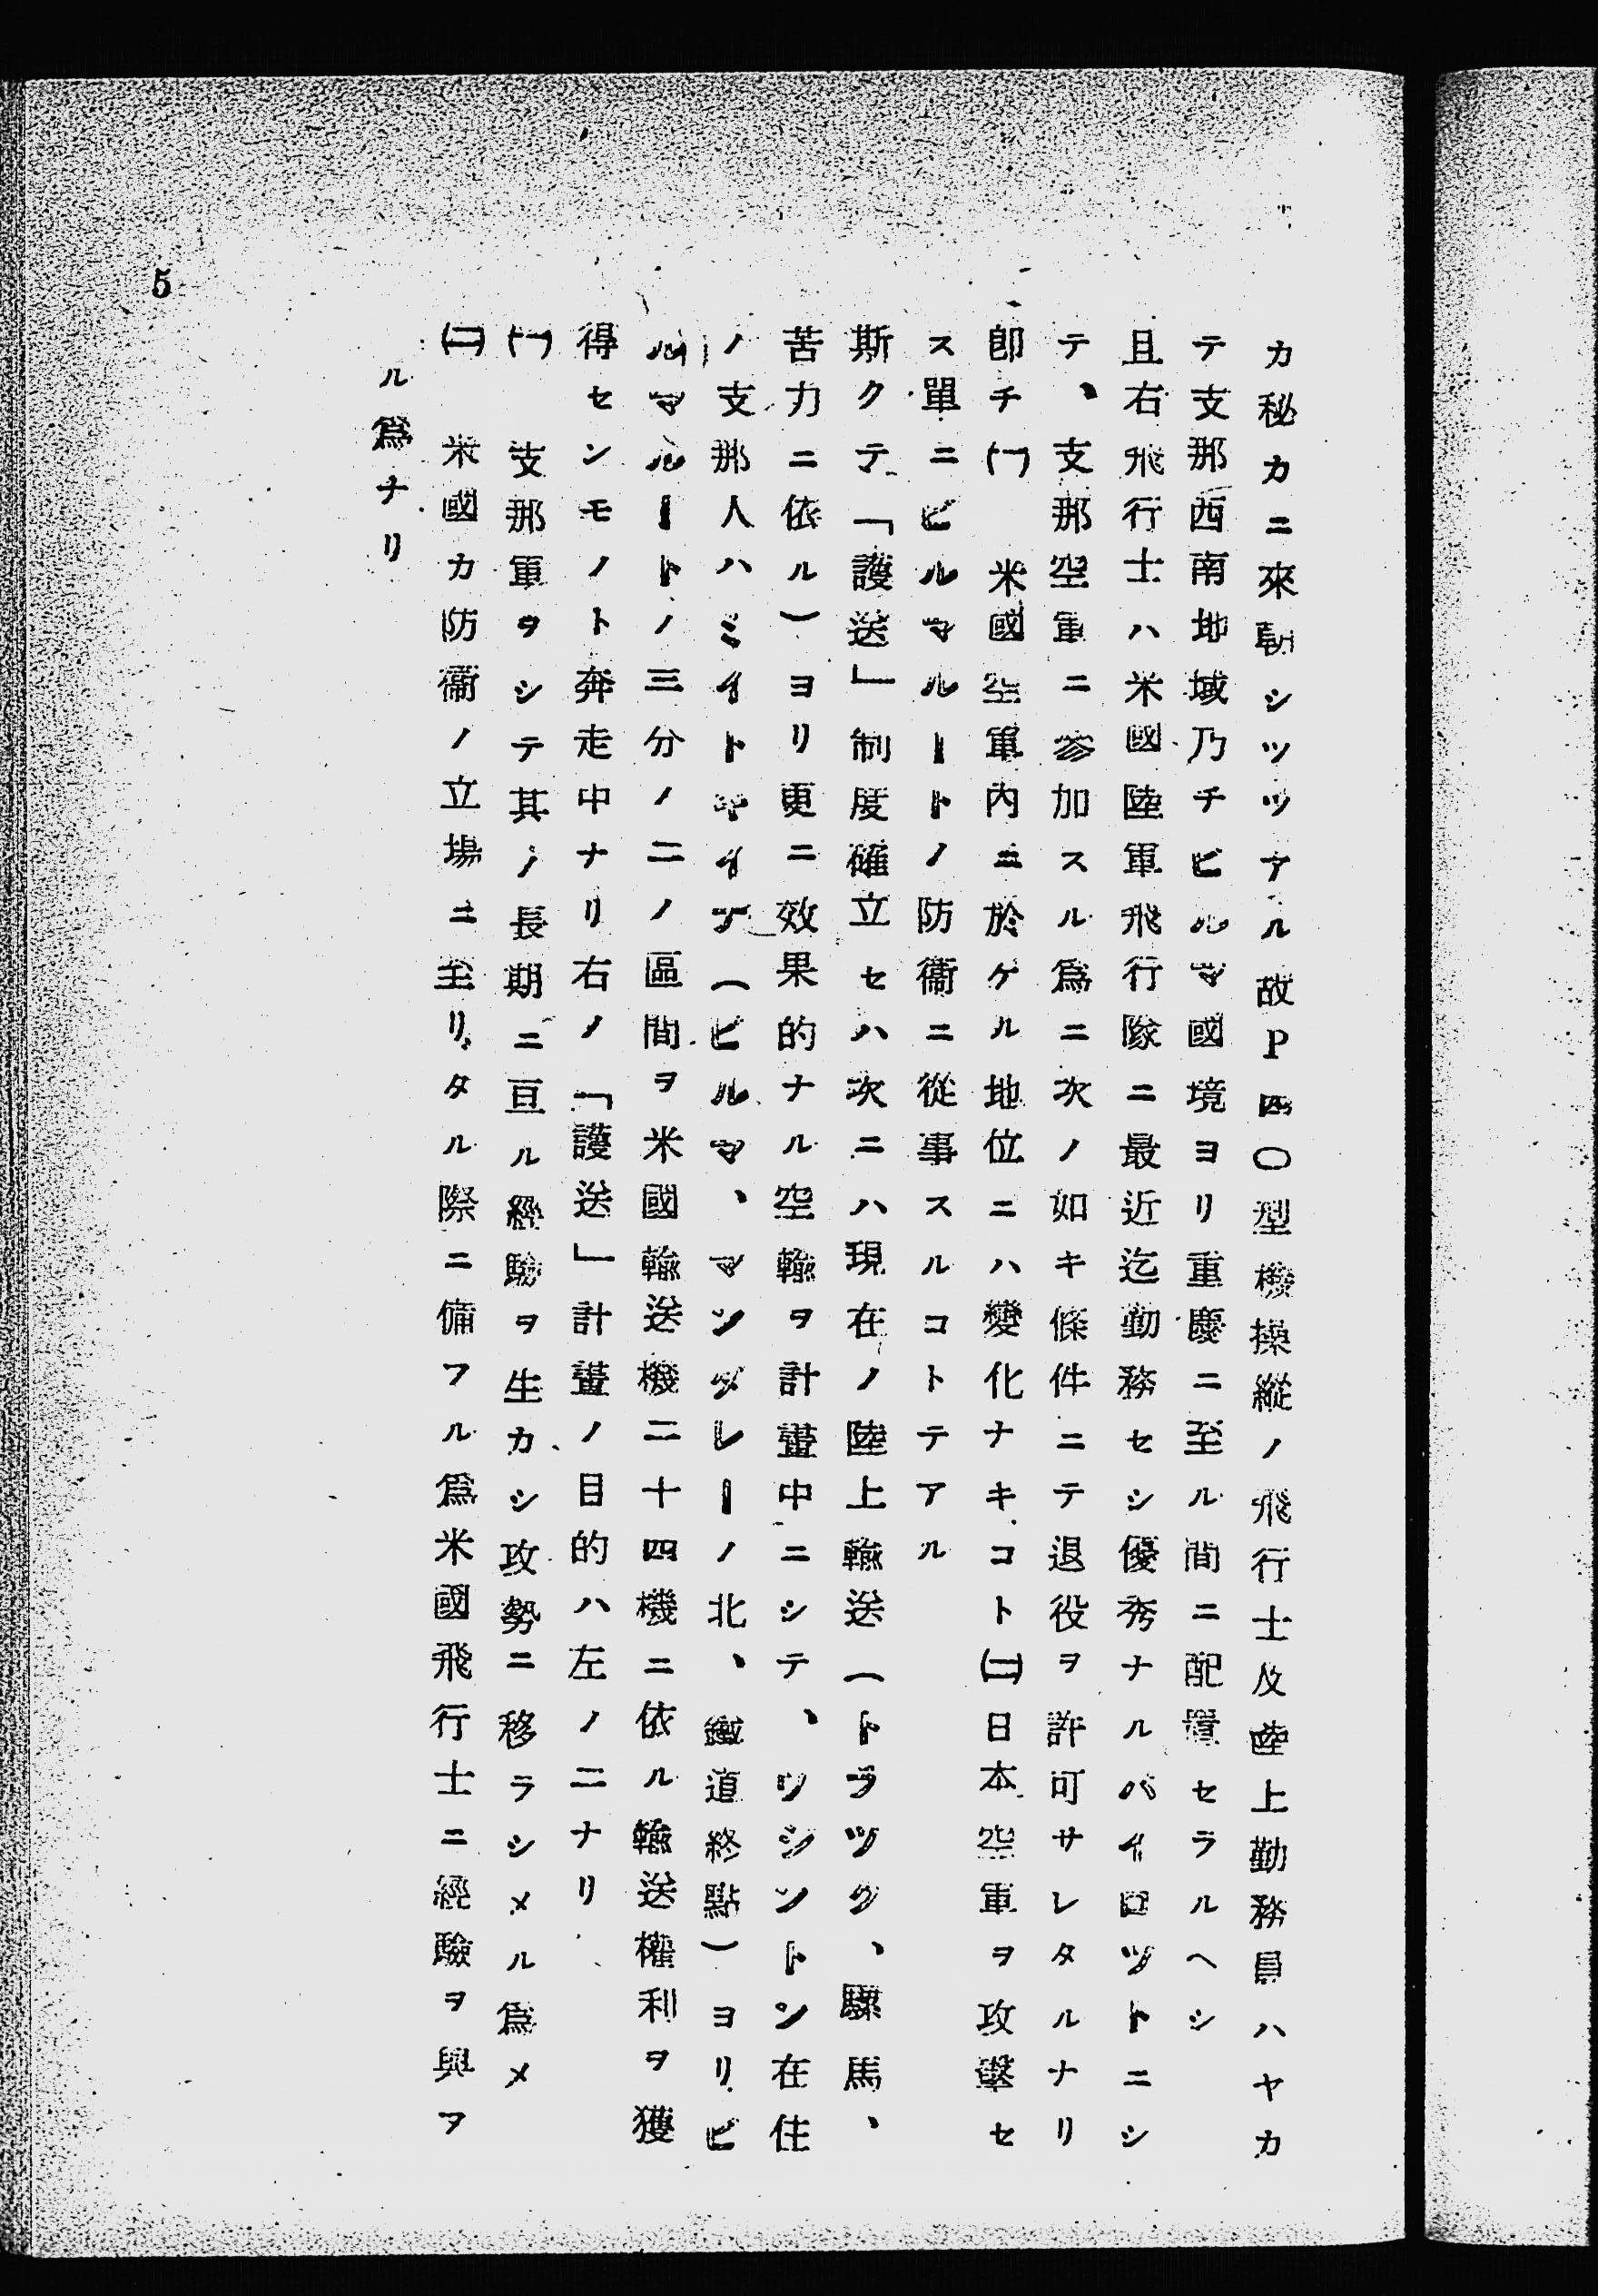 カ秘カニ來朝シツツアル故P四〇型機操縱ノ飛行士及陸上勤務員ハヤカ
テ支那西南地域乃チビルマ國境ヨリ重慶ニ至ル間ニ配置セラルヘシ
且右飛行士ハ米國陸軍飛行隊ニ最近迄勤務セシ優秀ナルパイロツトニシ
テ、支那空軍ニ參加スル爲ニ次ノ如キ條件ニテ退役ヲ許可サレタルナリ
卽チ㈠ 米國空軍內ニ於ケル地位ニハ變化ナキコト㈡日本空軍ヲ攻擊セ
ス單ニビルマルートノ防衞ニ從事スルコトテアル
斯クテ「護送」制度確立セハ次ニハ現在ノ陸上輸送(トラツク、騾馬、
苦力ニ依ル)ヨリ更ニ效果的ナル空輸ヲ計畫中ニシテ、ワシントン在住
ノ支那人ハミイトキイナ(ビルマ、マンダレーノ北、鐵道終點)ヨリビ
ルマルートノ三分ノ二ノ區間ヲ米國輸送機二十四機ニ依ル輸送權利ヲ獲
得センモノト奔走中ナリ右ノ「護送」計畫ノ目的ハ左ノ二ナリ
㈠ 支那軍ヲシテ其ノ長期ニ亘ル經驗ヲ生カシ攻勢ニ移ラシメル爲メ
㈡ 米國カ防衞ノ立場ニ至リタル際ニ備フル爲米國飛行士ニ經驗ヲ與ヲ
ル爲ナリ
5